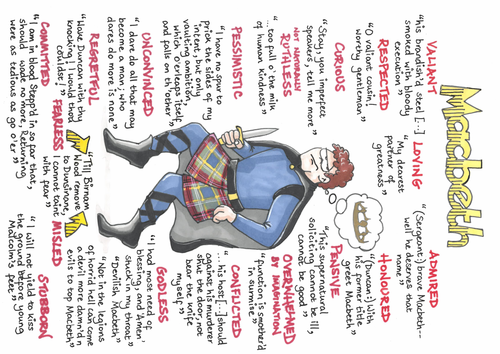 Macbeth
VALIANT
"his brandish'd steel [...]
smoked with bloody
execution"
RESPECTED
"O valiant cousin,
worthy gentleman"
CURIOUS
"Stay, you imperfect
speakers, tell me more"
NOT NATURALLY
RUTHLESS
"... too full o' the milk
of human kindness"
PESSIMISTIC
"I have no spur to
prick the sides of my
intent, but only
vaulting ambition,
which o'erleaps itself
and falls on th'other"
UNCONVINCED
"I dare do all that may
become a man; who
dares do more is none"
REGRETFUL
"Wake Duncan with thy
knocking! I would thou
couldst!"
COMMITTED
"I am in blood Stepp'd in so far that,
should I wade no more, Returning
were as tedious as go o'er"
LOVING
"My dearest
partner of
greatness"
FEARLESS
"Till Birnam
Wood remove
to Dunsinane,
I cannot taint
with fear"
MISLED
ADMIRED
(Sergeant:) brave Macbeth--
well he deserves that
name"
HONOURED
"(Duncan:) with
his former title
greet Macbeth"
PENSIVE
"this supernatural
soliciting cannot be ill,
cannot be good"
OVERWHELMED
BY IMAGINATION
"function is smother'd
in surmise"
CONFLICTED
"... his host, [...] should
against his murderer
shut the door, not
bear the knife
myself"
GODLESS
"I had most need of
blessing, and 'Amen'
stuck in my throat"
"Devilish Macbeth"
"Not in the legions
of horrid hell can come
a devil more damn'd in
evils to top Macbeth"
STUBBORN
"I will not yield to kiss
the ground before young
Malcolm's feet"